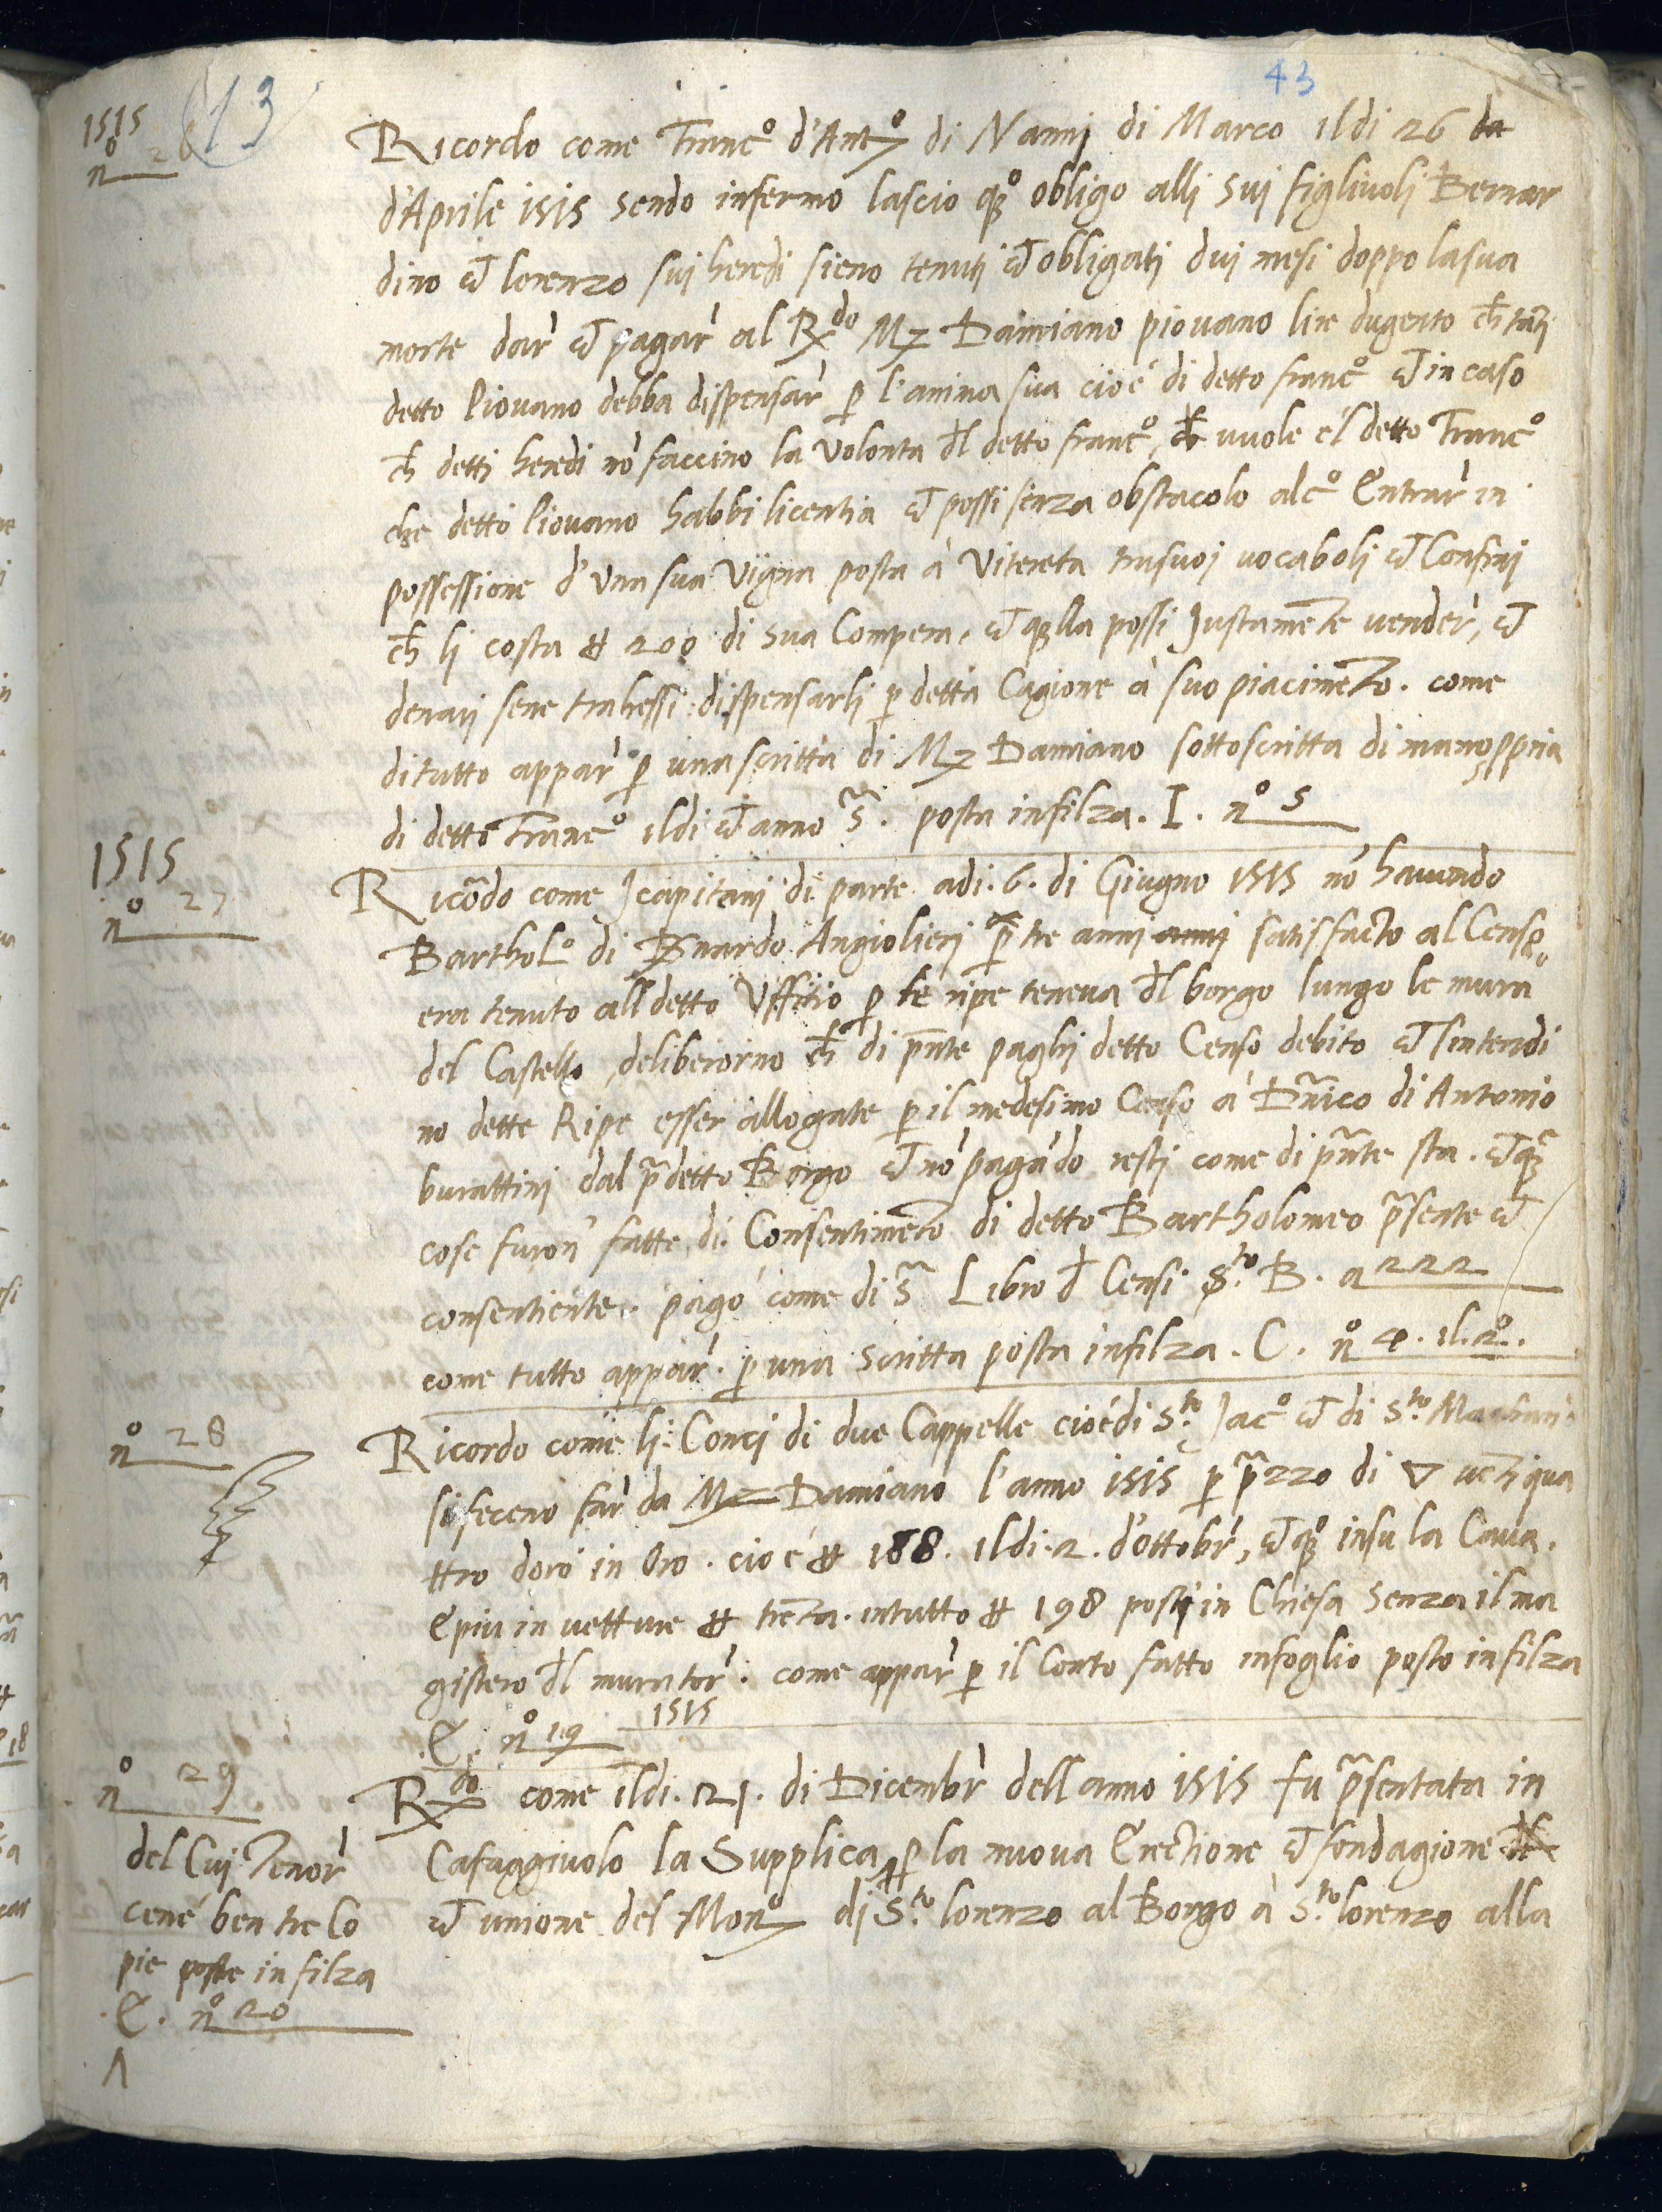 43
1515
n° 26
13
Ricordo come Franc° d'Ant° di Nannj di Marco il di 26 da
d'Aprile 1515 sendo infermo lascio q° obligo alli suj figlivoli Bernar
dino et lorenzo suj heredi sieno tenutj et obligatj duj mesi doppo la sua
morte dar̀ et pagar̀ al Rdo M Damiano piovano lire dugento ch tanti
detto Piovano debba dispensar̀ p l'anima sua cioè di detto franc° et in caso
ch detti heredi nō faccino la volonta dl detto franc°, ch vuole el detto Franc°
che detto Piovano habbi licentia et possi senza obstacolo alc° Entrar̀ in
possessione d'Una sua Vigna posta à Vitereta tra suoj vocabolj et Confinj
ch lj costa ₶ 200 di sua Compera, et qlla possi Justamēte vender̀, et
denarj sene trahessi dispensarlj p detta Cagione à suo piacimēto. come
di tutto appar̀ p una scritta di M Damiano sottoscritta di mano ppria
di detto Franc° il di et anno s̄. posta infilza. I. n° 5
1515
n° 27
Ricōdo come J capitanj di parte adi. 6. di Giugno 1515 nō havendo
Barthol° di Bnardo Angiolierj p tre annj annj satisfacto al Censo
era tenuto all detto Uffitio p le ripe teneva dl borgo lungo le mura
del Castello, deliberorno ch di pn̄te paghj detto Censo debito et sintendi
no dette Ripe esser allogate p il medesimo Censo à Dn̄ico di Antonio
burattinj dal p̄detto Borgo et nō pagādo restj come di pn̄te sta. et q̄
cose furon' fatte di Consentimēto di detto Bartholomeo p̄sente et
consentiente. pagò come di s̄ Libro d Censi S.to B. a 222
come tutto appar̀. p una scritta posta infilza. C. n° 4. il. 2°.
n° 28
Ricordo come lj Concj di due Cappelle cioè di S.to Jac° et di S.to
si feceno far̀ da M Damiano l'anno 1515 p p̄zzo di ▽ vētiqua
ttro doro in Oro. cioè ₶ 168. il di. 2. d'ottobr̀, et q° insu la Cava.
E piu in vetture ₶ trēta. intutto ₶ 198 postj in Chiesa senza il ma
gistero dl murator̀. come appar̀ p il Conto fatto in foglio posto infilza
E. n° 19 1515
n° 29
Rdo come il di. 21. di Dicembr̀ dell anno 1515 fu p̄sentata in
Cafaggivolo la Supplica p la nuova Erectione et fondagione
et unione del Mon° di S.to lorenzo al Borgo à S.to lorenzo alla
del Cuj Tenor̀
cenè ben tre Co
pie poste in filza
E. n° 20